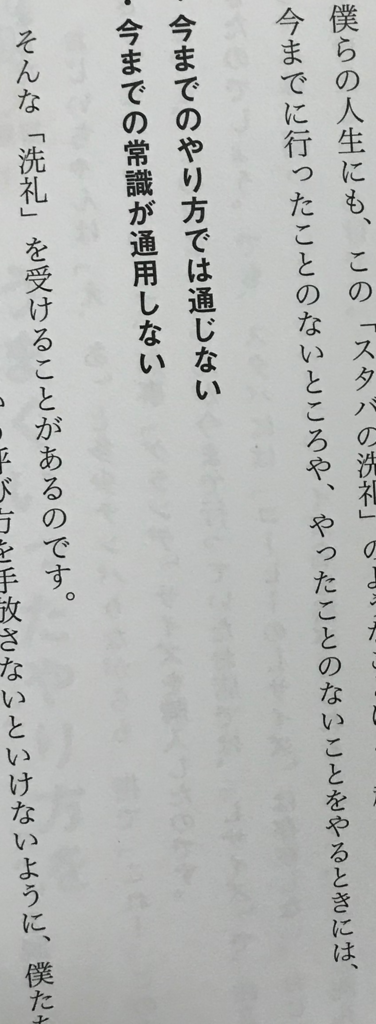 僕らの人生にも、この「スタバの洗礼」のような
今までに行ったことのないところや、やったことのないことをやるときには、
・今までのやり方では通じない
・今までの常識が通用しない
そんな「洗礼」を受けることがあるのです。
呼び方を手放さないといけないように、僕た